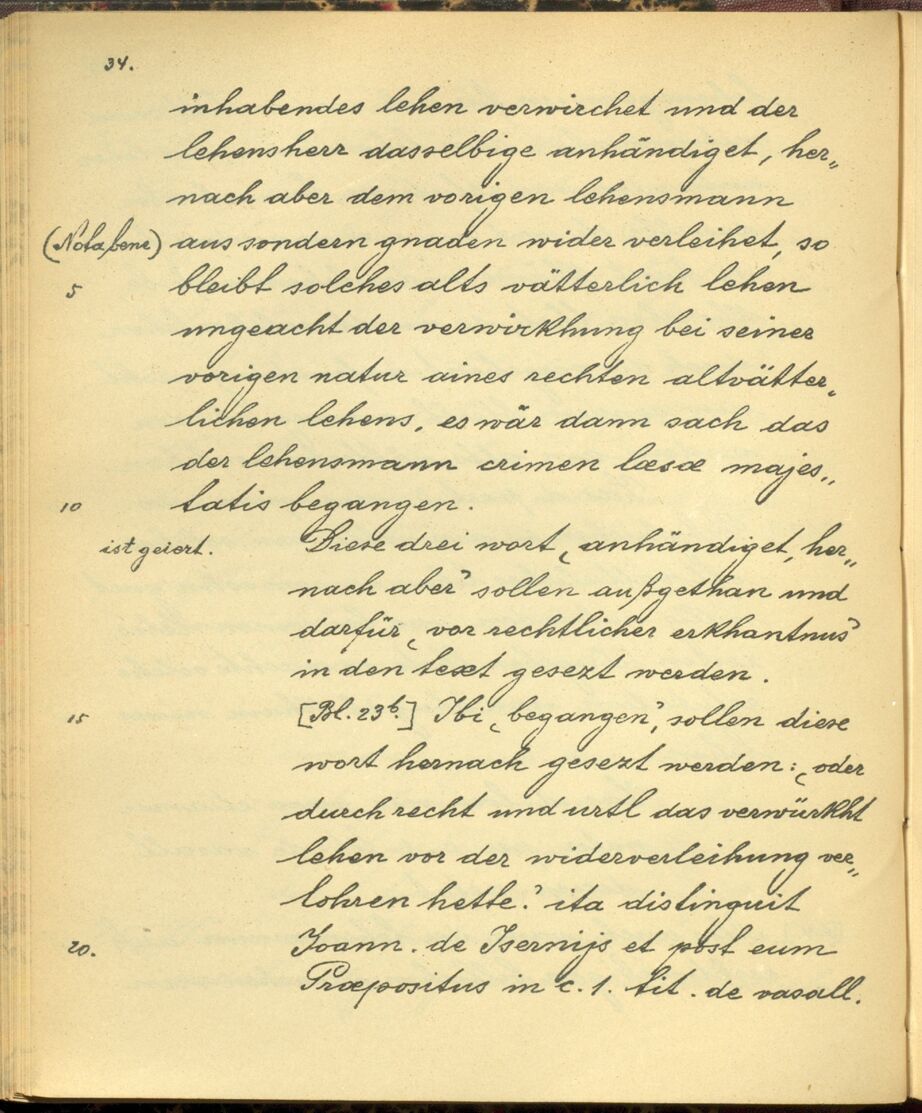 34.
inhabendes lehen verwirchet und der
lehensherr dasselbige anhändiget, her„
nach aber dem vorigen lehensmann
(Nota bene) aus sondern gnaden wider verleihet, so
5 bleibt solches alts vätterlich lehen
ungeacht der verwirkhung bei seiner
vorigen natur aines rechten altvätter„
lichen lehens, es wär dann sach das
der lehensmann crimen læsæ majes„
10 tatis begangen.
ist geiert. Diese drei wort ‚anhändiget, her„
nach aber‘ sollen außgethan und
darfür ‚vor rechtlicher erkhantnus‘
in den text gesezt werden.
15 [Bl. 23b.] Ibi ‚begangen‘, sollen diese
wort hernach gesezt werden: ‚oder
durch recht und urtl das verwürkht
lehen vor der widerverleihung ver„
lohren hette.‘ ita distinguit
20. Joann. de Isernijs et post eum
Præpositus in c. 1. tit. de vasall.